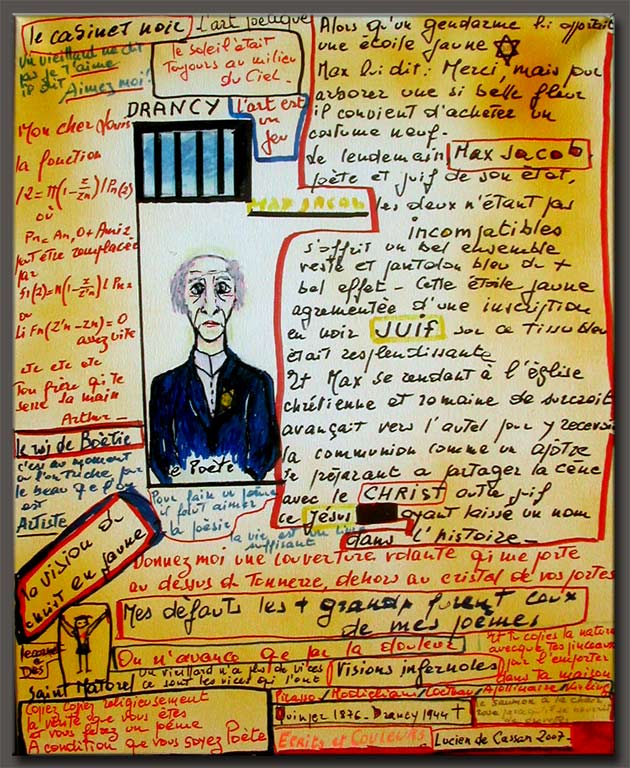 le cabinet noir
l'art poétique
Un vieillard ne dit
pas Je t'aime
il dit
Aimez moi!
le soleil était
Toujours au milieu
du Ciel.
DRANCY
l'art est
un
jeu
Mon cher
la fonction
où
peut être remplacée
par
ou
assez vite
etc etc etc
Ton frère qui te
serre la main
Arthur _
MAX JACOB
le Poète
Alors qu'un gendarme lui apportait
une étoile jaune
Max lui dit: Merci, mais pour
arborer une si belle fleur
il convient d'acheter un
costume neuf.
Le lendemain Max Jacob,
poète et juif de son état,
les deux n'étant pas
incompatibles
s'offrit un bel ensemble
veste et pantalon bleu du +
bel effet - Cette étoile jaune
agrementée d'une inscription
en noir JUIF sur ce tissu bleu
était resplendissante
Et Max se rendant à l'église
chrétienne et romaine de surcroit
avançait vers l'autel pour y recevoir
la communion comme un apôtre
se préparant a partager la cène
avec le CHRIST autre juif
ce Jésus ayant laissé un nom
dans l'histoire _
le roi de Béotie
c'est au moment
où l'on triche pour
le beau que l'on
est
Artiste
Pour faire un poème
il faut aimer
la poésie
la vie est un
suffisant
la vision du
christ en jaune
Donnez moi une couverture volante qui me porte
au dessus de Tonnerre, dehors au cristal de vos portes
Mes defauts les + grands furent ceux
de mes poèmes
On n'avance que par la douleur
Un vieillard n'a plus de vices
ce sont les vices qui l'ont
Visions infernales
Et tu copies la nature
avecque tes pinceaux
pour l'emporter
dans ta maison
Saint Matorel
Copiez Copiez religieusement
la vérité que vous êtes
et vous ferez un poème
A condition que vous soyez Poète
Picasso/Modigliani/Cocteau/Apollinaire/
Quimper 1876 - Drancy 1944 +
Ecrits et Couleurs
le saumon a la chair
rose parce qu'il se nourrit
de crevettes
Lucien de Cassan 2007-